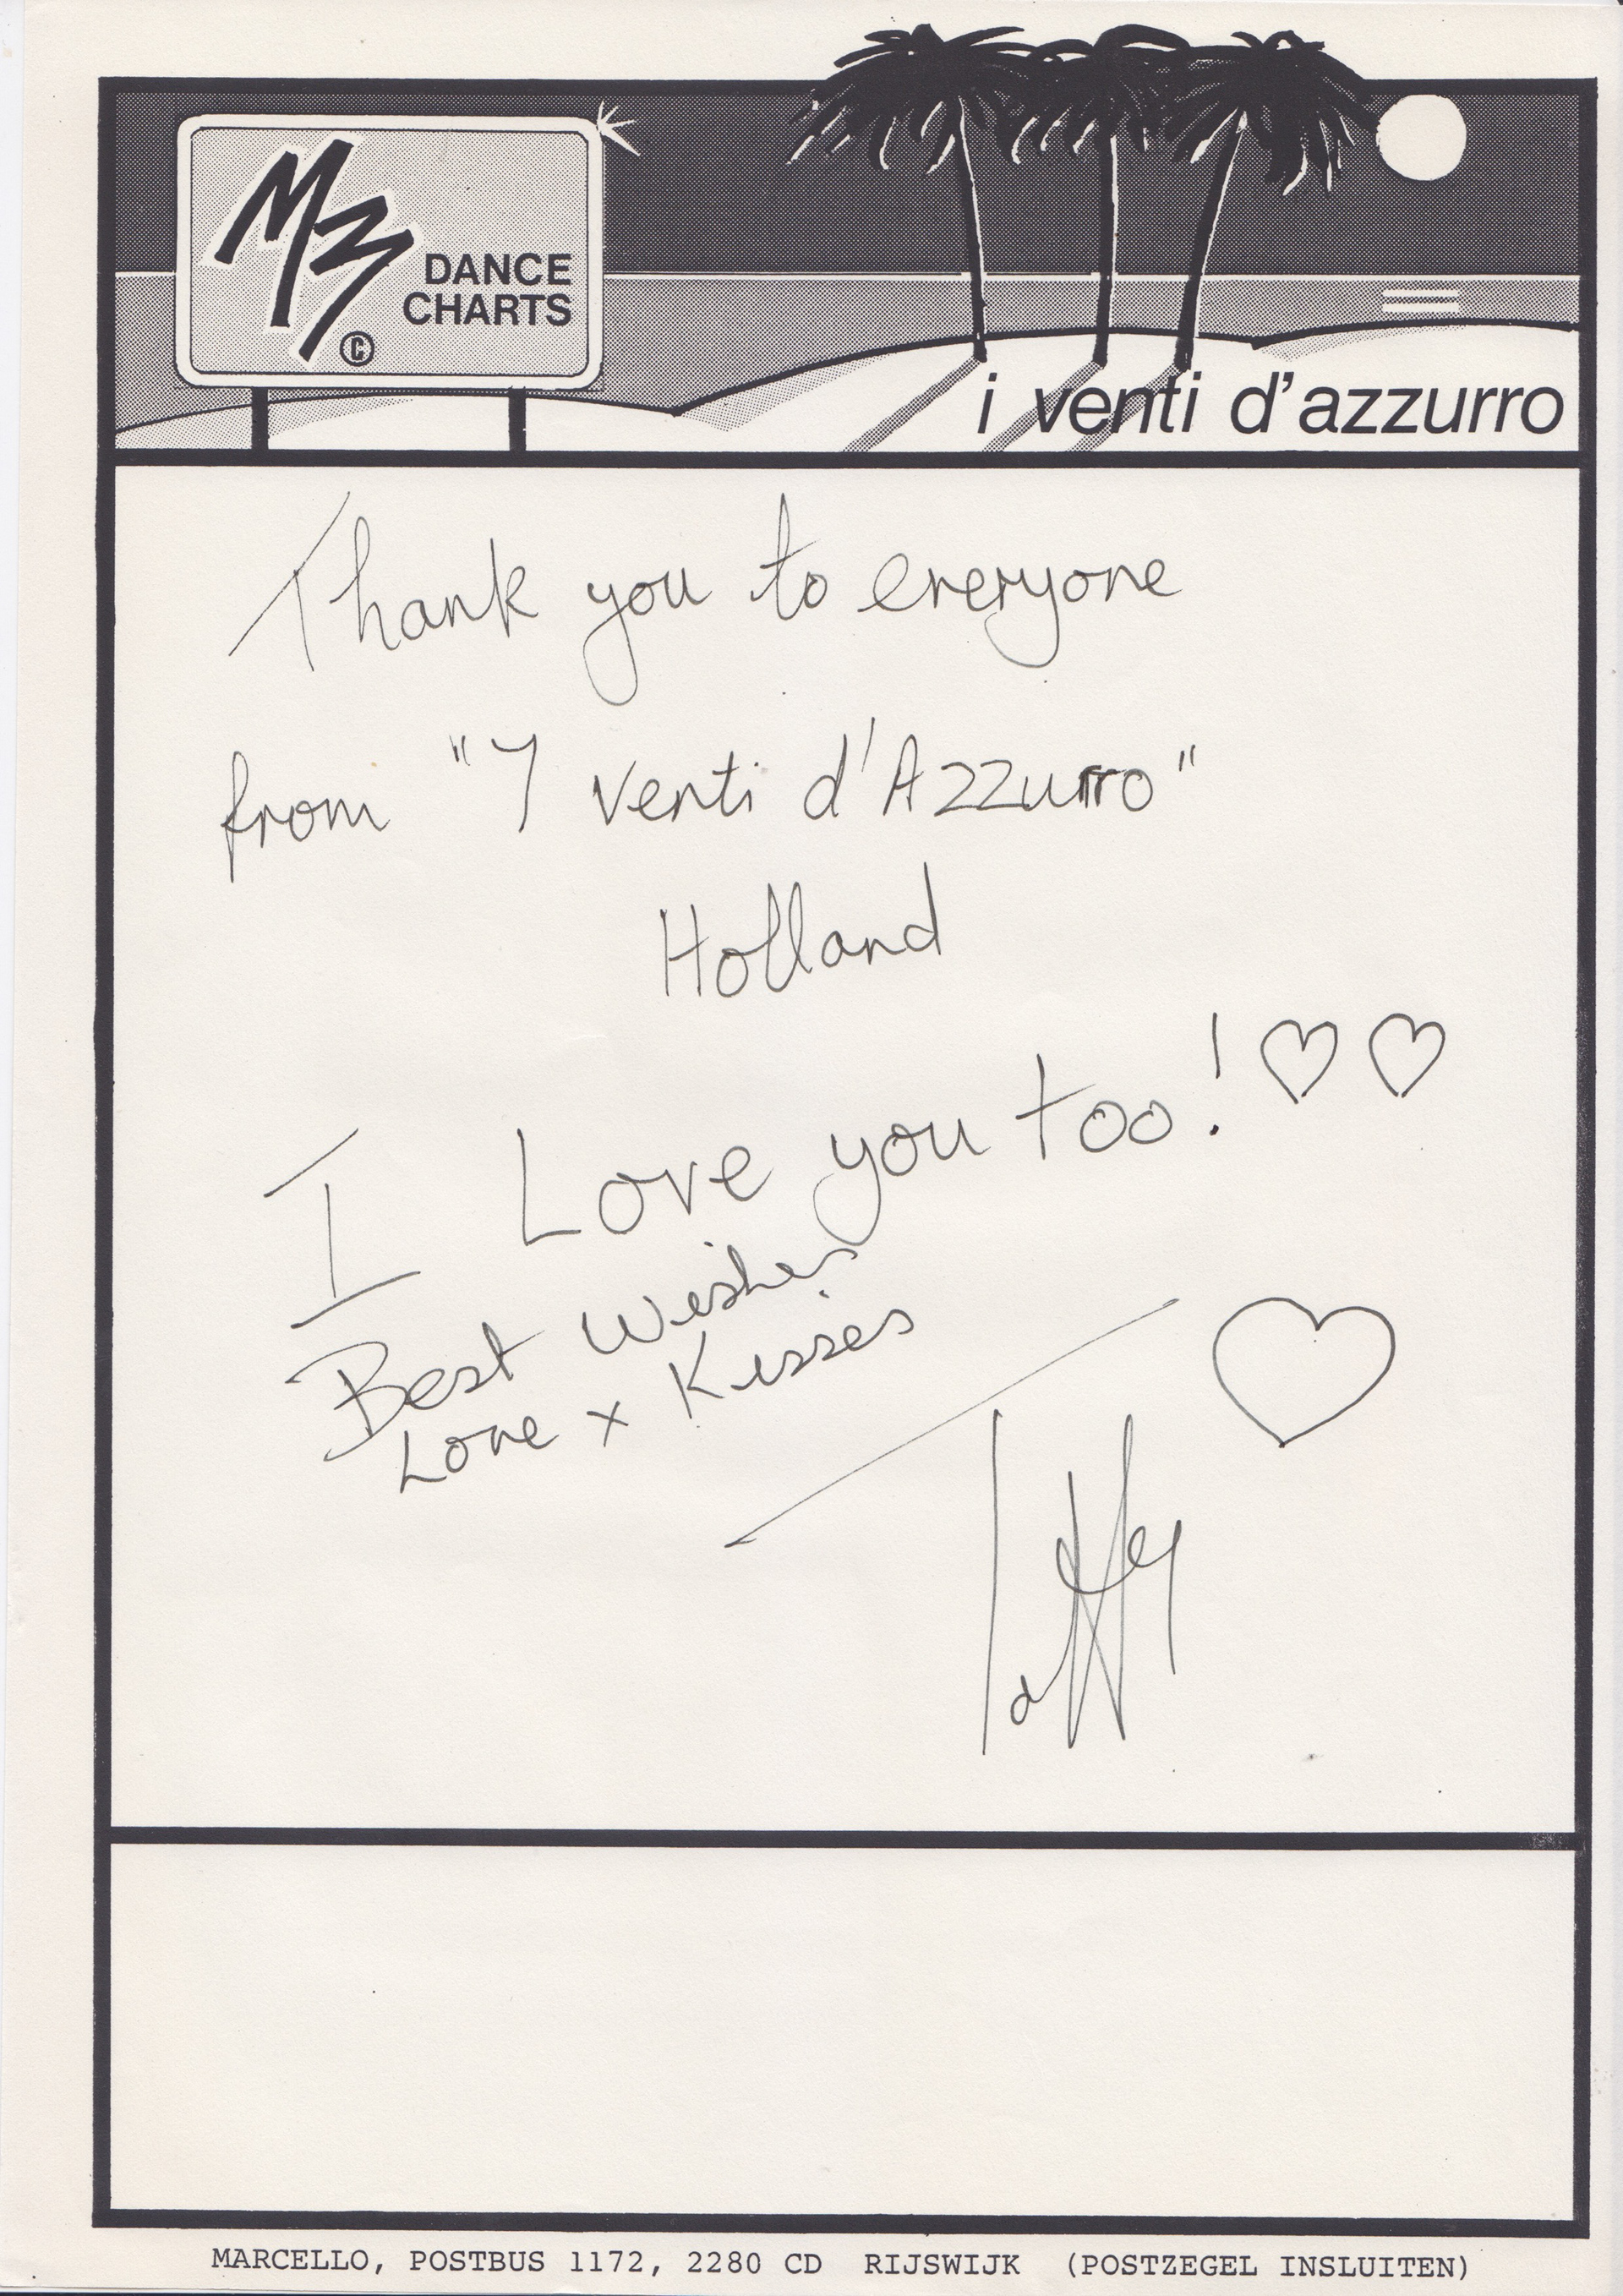 M3
DANCE
CHARTS
©
i venti d'azzurro
Thank you to everyone
from "I venti d'Azzurro"
Holland
I Love you too! ♡ ♡
Best Wishes
Love x Kisses
Taffy ♡
MARCELLO, POSTBUS 1172, 2280 CD RIJSWIJK (POSTZEGEL INSLUITEN)